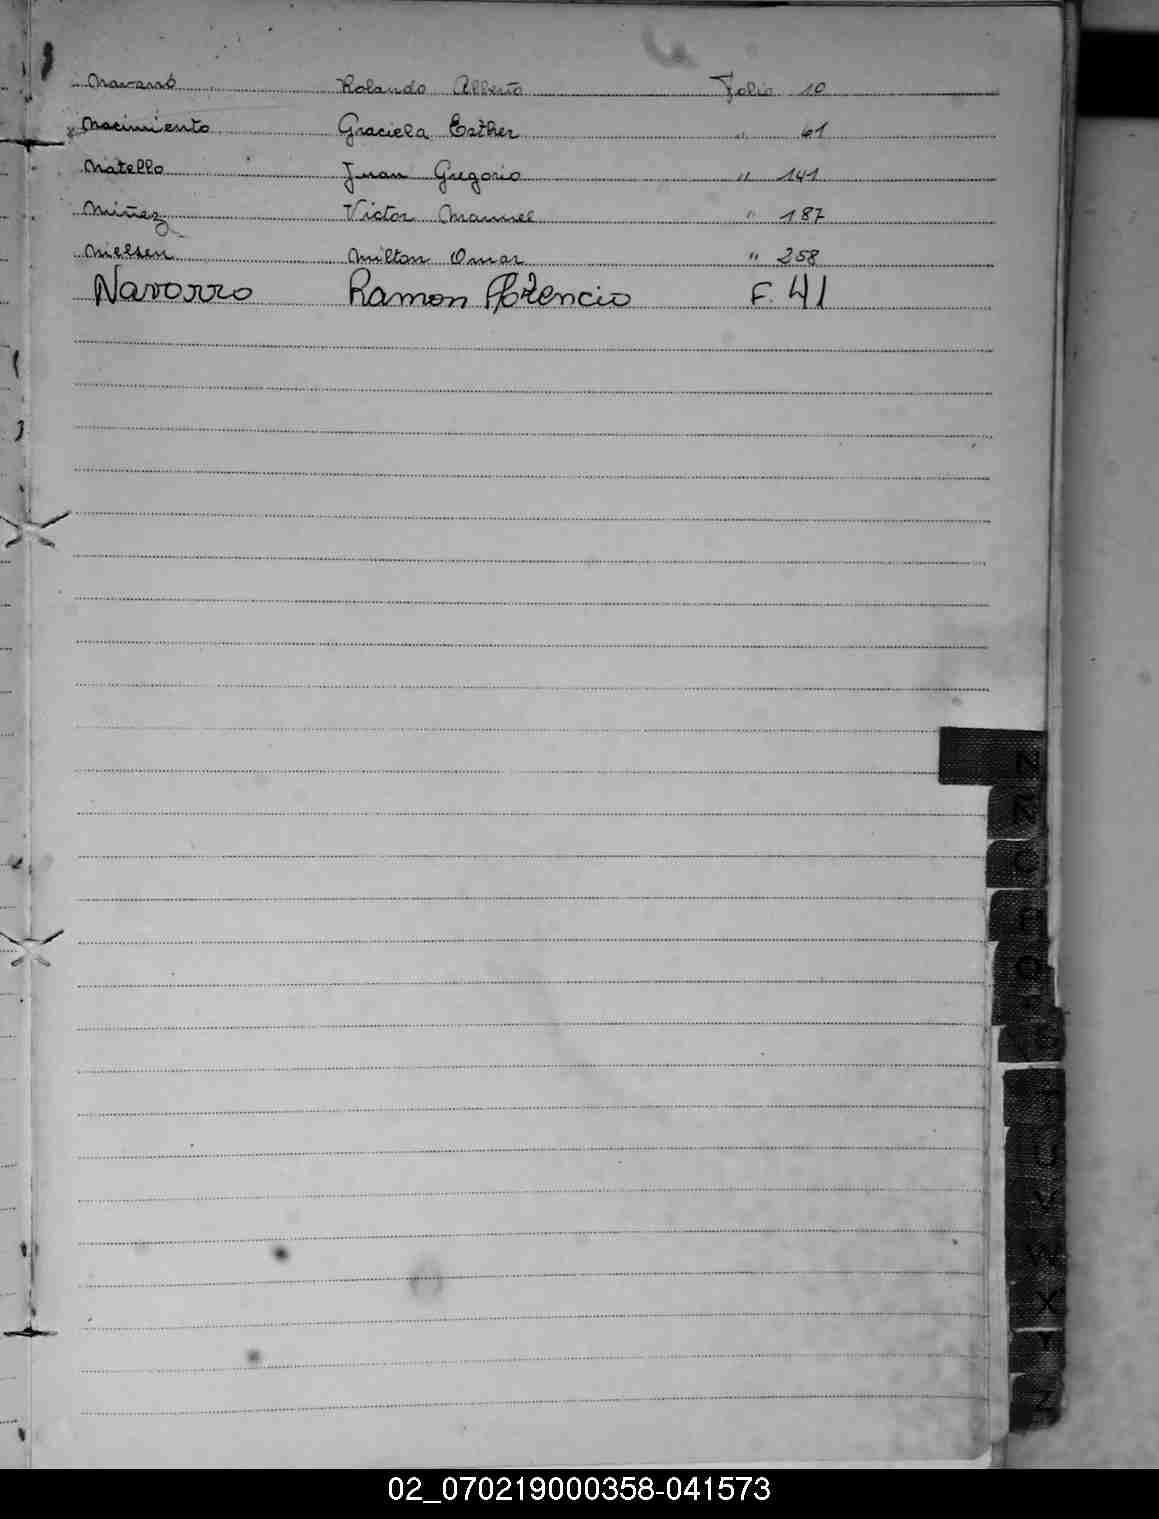 Navarró Rolando Alberto Folio 10
Nacimiento Graciela Esther " 61
Natello Juan Gregorio " 141
Niñez Victor Manuel " 187
Nielsen Milton Omar " 258
Navorro Ramon Florencio F. 41
N
Ñ
O
P
Q
S
T
U
V
W
X
Y
Z
02_070219000358-041573